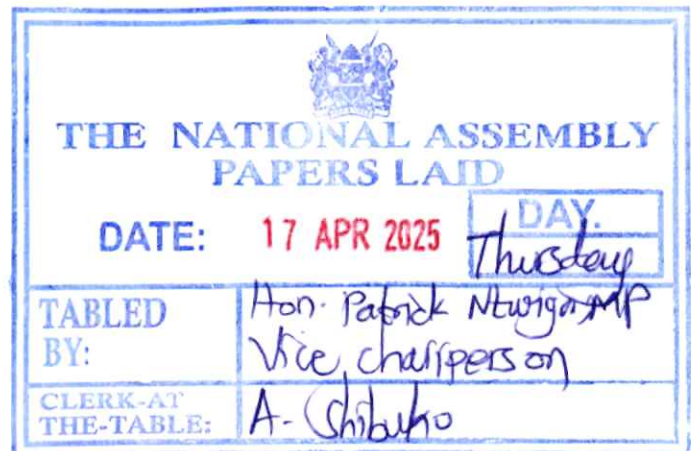 THE NATIONAL ASSEMBLY
PAPERS LAID
DATE: 17 APR 2025
DAY.
Thursday
TABLED BY:
Hon. Patrick Ntwiga, MP
Vice chairperson
CLERK-AT THE-TABLE:
A. Shibuko